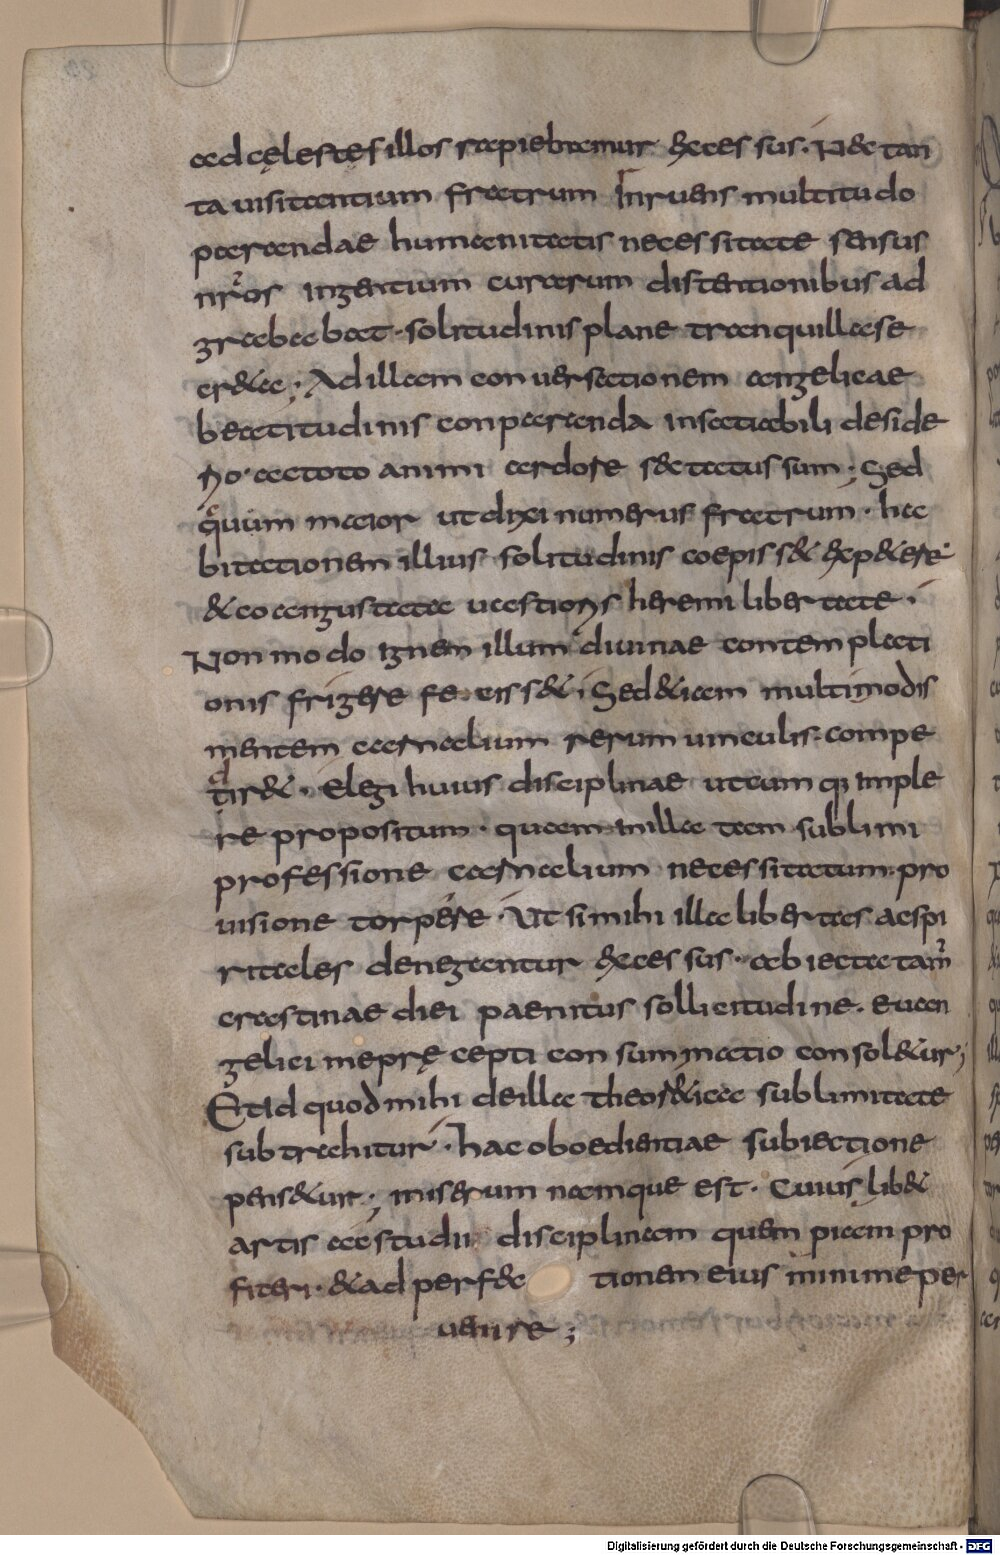 ad cęlestęs illos rapiebamur excessus. Nec tan
ta uisitantium fratrum inruens multitudo
parendae humanitatis necessitate sensus
nr̃os ingentium curarum distentionibus ad
grababat. solitudinis plane tranquillase
creta; Ad illam conuersationem angelicae
beatitudinis conparanda insatiabili deside
rio. ac toto animi ardore sectatus sum; Sed
quum maior ut dixi numerus fratrum. ha
bitationem illius solitudinis coepisset expetere
et coangustata uastioris heremi libertate.
Non modo ignem illum diuinae contemplati
onis frigere fecisset; Sed etiam multimodis
mentem carnalium rerum uinculis compe
diret. Elegi huius disciplinae utcumq; imple
re propositum. quam in illa tam sublimi
professione carnalium necessitatum pro
uisione torpere. Ut si mihi illa libertas ac spi
ritales denegantur excessus. abiecta tam̃
crastinae diei paenitus sollicitudine. euan
gelici me pręcepti consummatio consoletur;
Et id quod mihi de illa theoretica sublimitate
subtrahitur. hac oboedientiae subiectione
pensetur; miserum namque est. Cuiuslibet
artis ac studii disciplinam quempiam pro
fiteri. et ad perfectionem eius minime per
uenire;
Digitalisierung gefördert durch die Deutsche Forschungsgemeinschaft - DFG